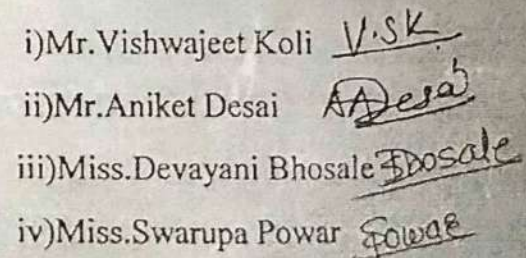 i)Mr.Vishwajeet Koli V.SK.
ii)Mr.Aniket Desai AADesai
iii)Miss.Devayani Bhosale Bhosale
iv)Miss.Swarupa Powar Spowar